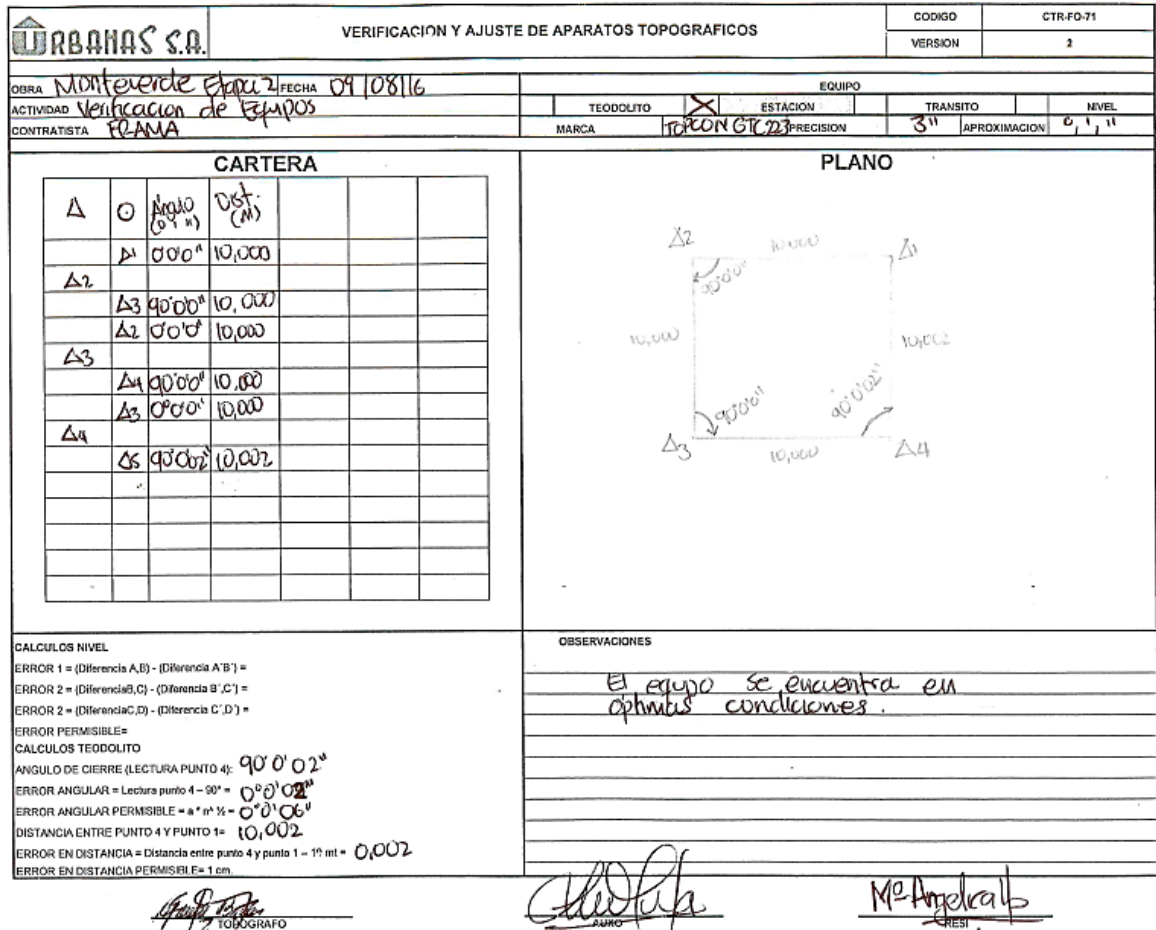 URBANAS S.A.
VERIFICACION Y AJUSTE DE APARATOS TOPOGRAFICOS
CODIGO CTR-FO-71
VERSION 2
OBRA Monteverde Etapa 2 FECHA 09/08/16
EQUIPO
ACTIVIDAD Verificacion de Equipos
TEODOLITO X ESTACION TRANSITO NIVEL
CONTRATISTA FRAMA
MARCA TOPCON GTC 223 PRECISION 3" APROXIMACION °, ', "
CARTERA
Δ ⊙ Ángulo (° ' ") Dist. (M)
Δ1 0°0'0" 10,000
Δ2
Δ3 90°0'0" 10,000
Δ2 0°0'0" 10,000
Δ3
Δ4 90°0'0" 10,000
Δ3 0°0'0" 10,000
Δ4
Δ5 90°0'02" 10,002
PLANO
Δ2 10,000 Δ1
90°0'0"
10,000 10,002
90°0'0" 90°0'02"
Δ3 10,000 Δ4
CALCULOS NIVEL
ERROR 1 = (Diferencia A,B) - (Diferencia A´B´) =
ERROR 2 = (DiferenciaB,C) - (Diferencia B´,C´) =
ERROR 2 = (DiferenciaC,D) - (Diferencia C´,D´) =
ERROR PERMISIBLE=
CALCULOS TEODOLITO
ANGULO DE CIERRE (LECTURA PUNTO 4): 90°0'02"
ERROR ANGULAR = Lectura punto 4 – 90° = 0°0'02"
ERROR ANGULAR PERMISIBLE = a * n^ ½ = 0°0'06"
DISTANCIA ENTRE PUNTO 4 Y PUNTO 1= 10,002
ERROR EN DISTANCIA = Distancia entre punto 4 y punto 1 – 10 mt = 0,002
ERROR EN DISTANCIA PERMISIBLE= 1 cm.
OBSERVACIONES
El equipo se encuentra en
optimas condiciones.
TOPOGRAFO
AUXO
Mª Angelica
RESI